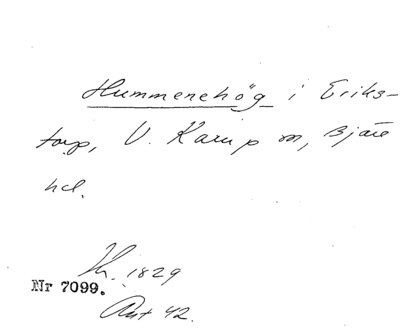 Hummenehög i Eriks-
torp, V. Karup sn, Bjäre
hd.
1829
Nr 7099.
Ant 42.